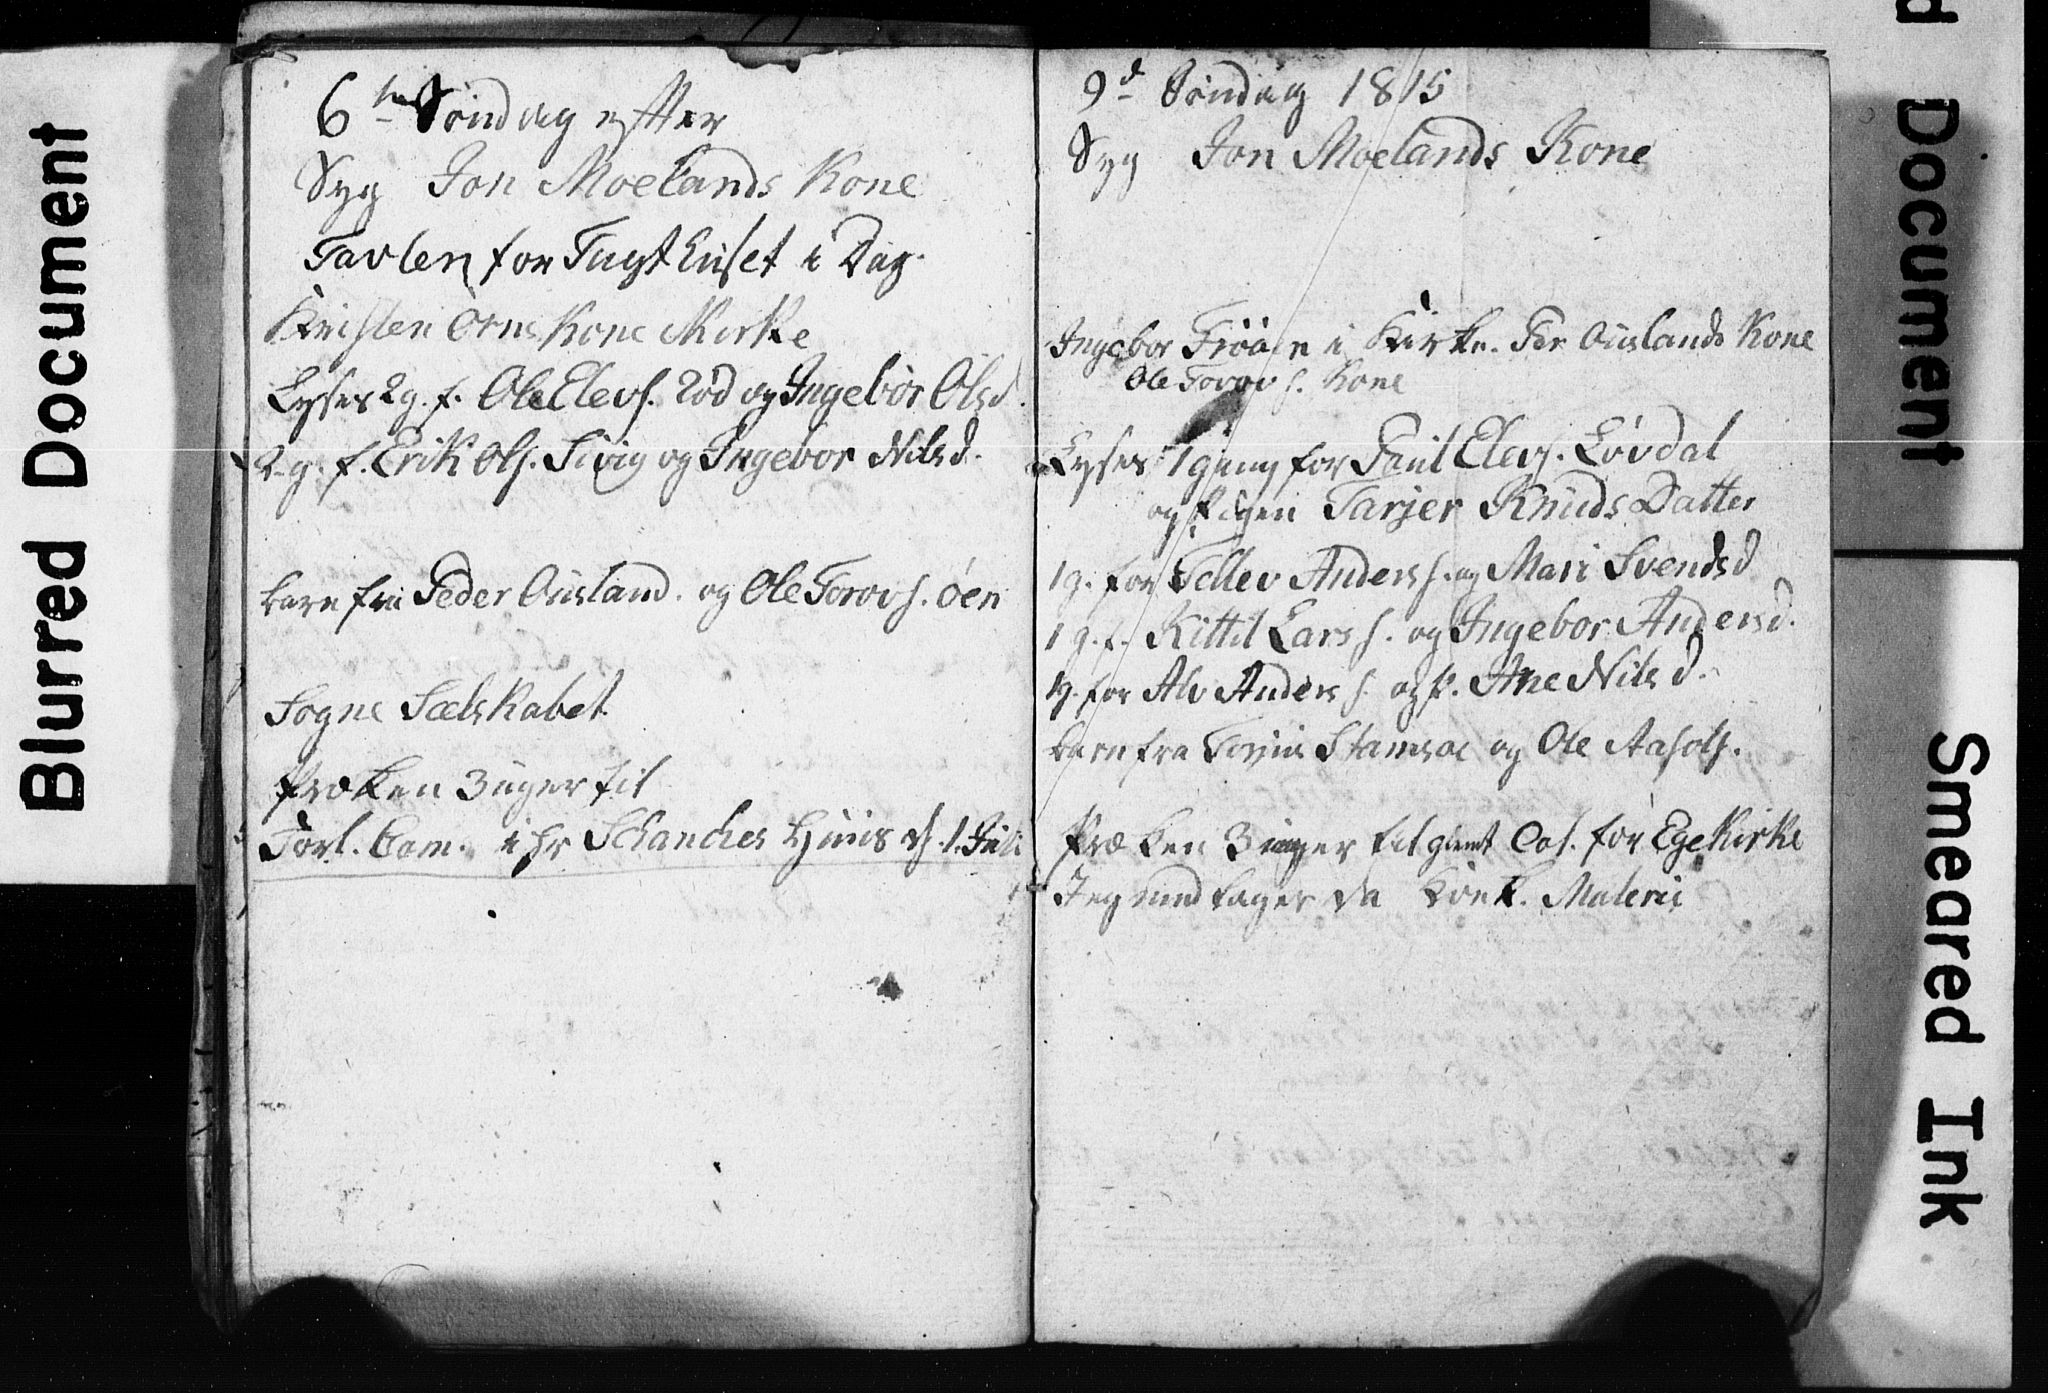 Blurred Document
6te Søndag efter
Syg Jon Moelands Kone
Tavlen for Tugthuset i Dag.
Kirsten Ørns Kone Kirke
Lyses 2 g. f. Ole Elevs. Rød og Ingebor Olsd.
2 g. f. Erik Ols. Sivig og Ingebor Nilsd.
barn fra Peder Ousland. og Ole Torovs. Øen
Sogne Sælskabet
Præken 3 uger til
Forl. Com. i Hr Schanches Huus d. 1. Juli
9d Søndag 1815
Syg Jon Moelands Kone
Ingebor Frøåsen i Kirke. Per Ouslands Kone
Ole Torovs. Kone
Lyses 1 gang for Poul Elevs. Løvdal
og Pigen Tarjer Knuds Datter
1 g. for Tellev Anderss. og Mari Svendsd
1 g. f. Kittil Larss. og Ingebor Andersd.
1 g. for Alv Anderss. og p. Ane Nilsd.
barn fra Stamsoe og Ole Aasols.
Præken 3 uger til glemt Col. for Ege Kirke
Jeg modtager da
d Document
Smeared Ink